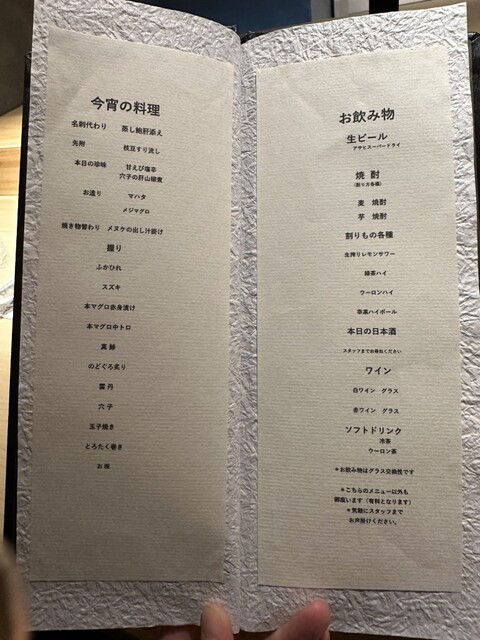 今宵の料理
名刺代わり 蒸し鮑肝添え
先附 枝豆すり流し
本日の珍味 甘えび塩辛
穴子の肝山椒煮
お造り マハタ
メジマグロ
焼き物替わり メヌケの出し汁掛け
握り
ふかひれ
スズキ
本マグロ赤身漬け
本マグロ中トロ
真鯵
のどぐろ炙り
雲丹
穴子
玉子焼き
とろたく巻き
お椀
お飲み物
生ビール
アサヒスーパードライ
焼酎
(割り方各種)
麦 焼酎
芋 焼酎
割りもの各種
生搾りレモンサワー
緑茶ハイ
ウーロンハイ
ハイボール
本日の日本酒
スタッフまでお尋ねください
ワイン
白ワイン グラス
赤ワイン グラス
ソフトドリンク
冷茶
ウーロン茶
*お飲み物はグラス交換性です
*こちらのメニュー以外も
御座います(有料となります)
*気軽にスタッフまで
お声掛けください。